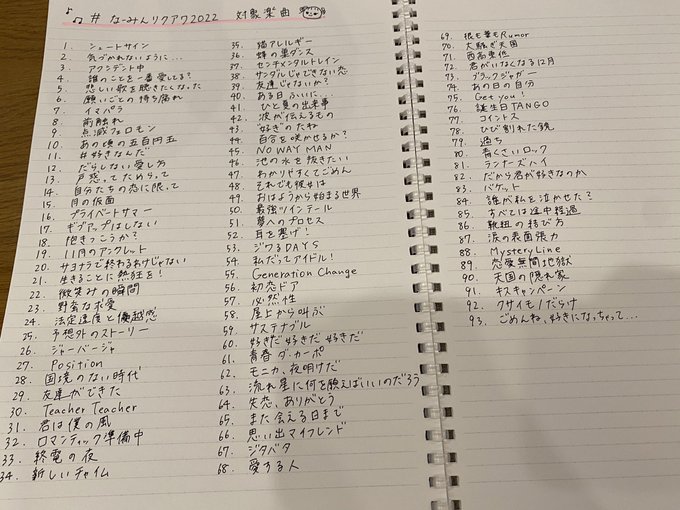 ♪♫ #なーみんリクアワ2022 対象楽曲
1. シュートサイン
2. 気づかれないように...
3. アクシデント中
4. 誰のことを一番愛してる?
5. 悲しい歌を聴きたくなった
6. 願いごとの持ち腐れ
7. イマパラ
8. 前触れ
9. 点滅フェロモン
10. あの頃の五百円玉
11. #好きなんだ
12. だらしない愛し方
13. 戸惑ってためらって
14. 自分たちの恋に限って
15. 月の仮面
16. プライベートサマー
17. ギブアップはしない
18. 抱きつこうか?
19. 11月のアンクレット
20. サヨナラで終わるわけじゃない
21. 生きることに熱狂を!
22. 微笑みの瞬間
23. 野蛮な求愛
24. 法定速度と優越感
25. 予想外のストーリー
26. ジャーバージャ
27. Position
28. 国境のない時代
29. 友達ができた
30. Teacher Teacher
31. 君は僕の風
32. ロマンティック準備中
33. 終電の夜
34. 新しいチャイム
35. 猫アレルギー
36. 蜂の巣ダンス
37. センチメンタルトレイン
38. サンダルじゃできない恋
39. 友達じゃないか?
40. ある日 ふいに...
41. ひと夏の出来事
42. 波が伝えるもの
43. "好き"のたね
44. 百合を咲かせるか?
45. NO WAY MAN
46. 池の水を抜きたい
47. わかりやすくてごめん
48. それでも彼女は
49. おはようから始まる世界
50. 最強ツインテール
51. 夢へのプロセス
52. 耳を塞げ!
53. ジワるDAYS
54. 私だってアイドル!
55. Generation Change
56. 初恋ドア
57. 必然性
58. 屋上から叫ぶ
59. サステナブル
60. 好きだ 好きだ 好きだ
61. 青春 ダ・カーポ
62. モニカ、夜明けだ
63. 流れ星に何を願えばいいのだろう
64. 失恋、ありがとう
65. また会える日まで
66. 思い出マイフレンド
67. ジタバタ
68. 愛する人
69. 根も葉もRumor
70. 大騒ぎ天国
71. 西高東低
72. 君がいなくなる12月
73. ブラックジャガー
74. あの日の自分
75. Get you!
76. 誕生日TANGO
77. コイントス
78. ひび割れた鏡
79. 過ち
80. 青くさいロック
81. ランナーズハイ
82. だから君が好きなのか
83. バケット
84. 誰が私を泣かせた?
85. すべては途中経過
86. 靴紐の結び方
87. 涙の表面張力
88. Mystery Line
89. 恋愛無間地獄
90. 天国の隠れ家
91. キスキャンペーン
92. クサイモノだらけ
93. ごめんね、好きになっちゃって...